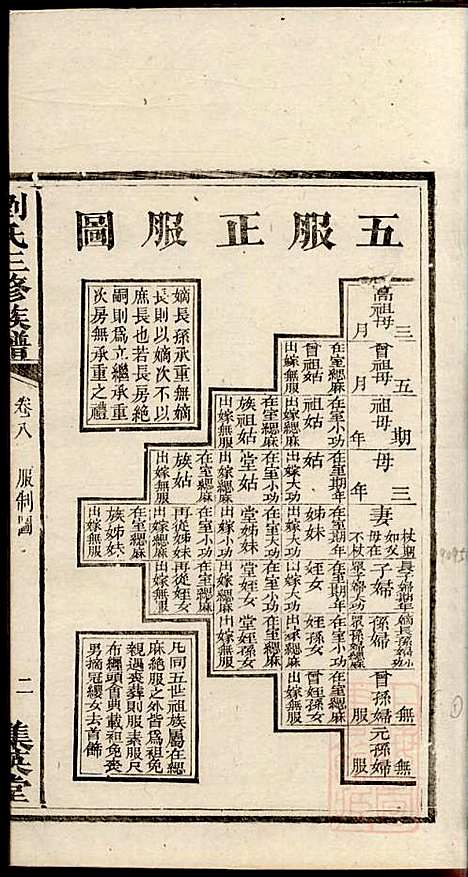 五服正服圖
高祖母
三月
曾祖母
五月
祖母
期年
母
三年
妻
杖期
如父母在
不杖
子婦
長子婦期年
衆子婦大功
孫婦
嫡長孫婦小功
衆孫婦緦麻
曾孫婦
無
元孫婦
無服
曾祖姑
在室緦麻
出嫁無服
祖姑
在室小功
出嫁緦麻
姑
在室期年
出嫁大功
姊妹
在室期年
出嫁大功
姪女
在室期年
出嫁大功
姪孫女
在室小功
出嫁緦麻
曾姪孫女
在室緦麻
出嫁無服
族祖姑
在室緦麻
出嫁無服
堂姑
在室小功
出嫁緦麻
堂姊妹
在室大功
出嫁小功
堂姪女
在室小功
出嫁緦麻
堂姪孫女
在室緦麻
出嫁無服
族姑
在室緦麻
出嫁無服
再從姊妹
在室小功
出嫁緦麻
再從姪女
在室緦麻
出嫁無服
族姊妹
在室緦麻
出嫁無服
嫡長孫承重無嫡
長則以嫡次不以
庶長也若長房絕
嗣則爲立繼承重
次房無承重之禮
凡同五世祖族屬在緦
麻絕服之外皆爲袒免
親遇喪葬則服素服尺
布纏頭會典載和免喪
男摘冠纓女去首飾
劉氏三修族譜
卷八 服制圖
二
集英堂